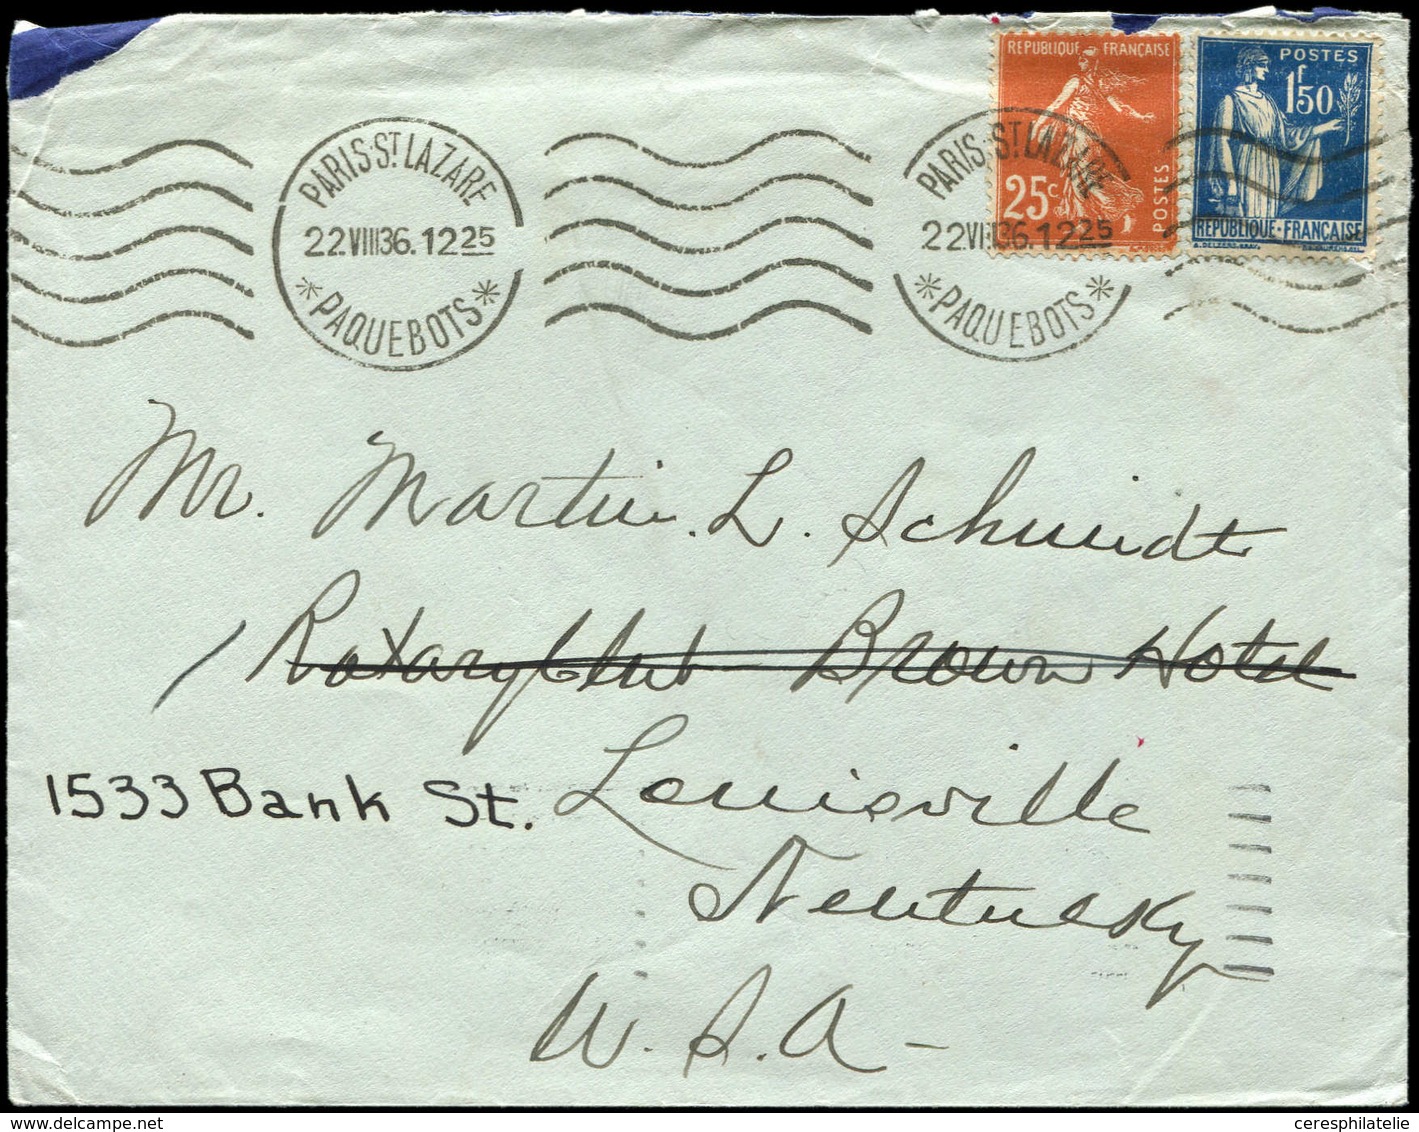 RÉPUBLIQUE FRANÇAISE
25c
POSTES
POSTES
1f50
REPUBLIQUE-FRANÇAISE
PARIS-ST LAZARE
22VIII36.1225
*PAQUEBOTS*
PARIS-ST LAZARE
22VIII36.1225
*PAQUEBOTS*
Mr. Martin. L. Schmidt
Rotary Club - Brown Hotel
1533 Bank St.
Louisville
Kentucky
U. S. A -
ceresphilatelie